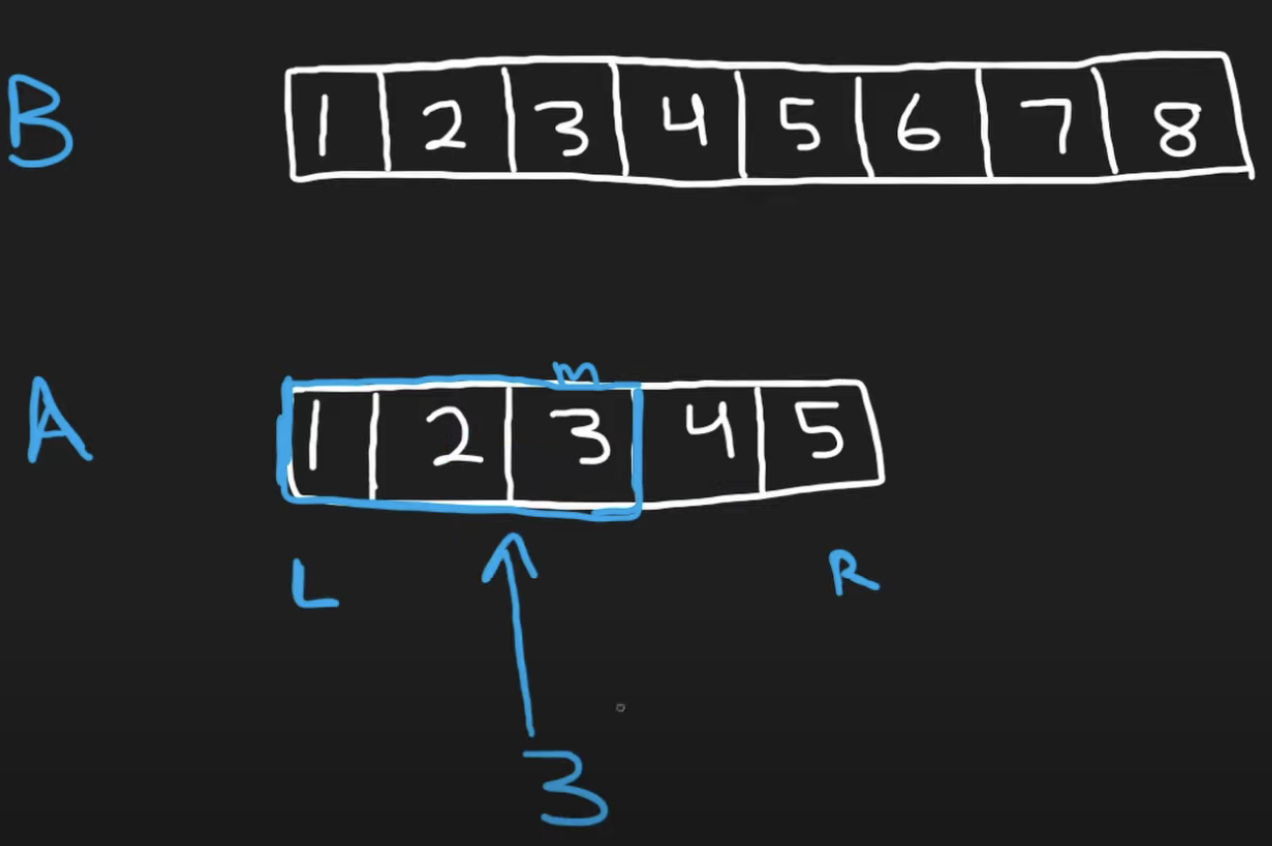 B 1 2 3 4 5 6 7 8
m
A 1 2 3 4 5
L R
3